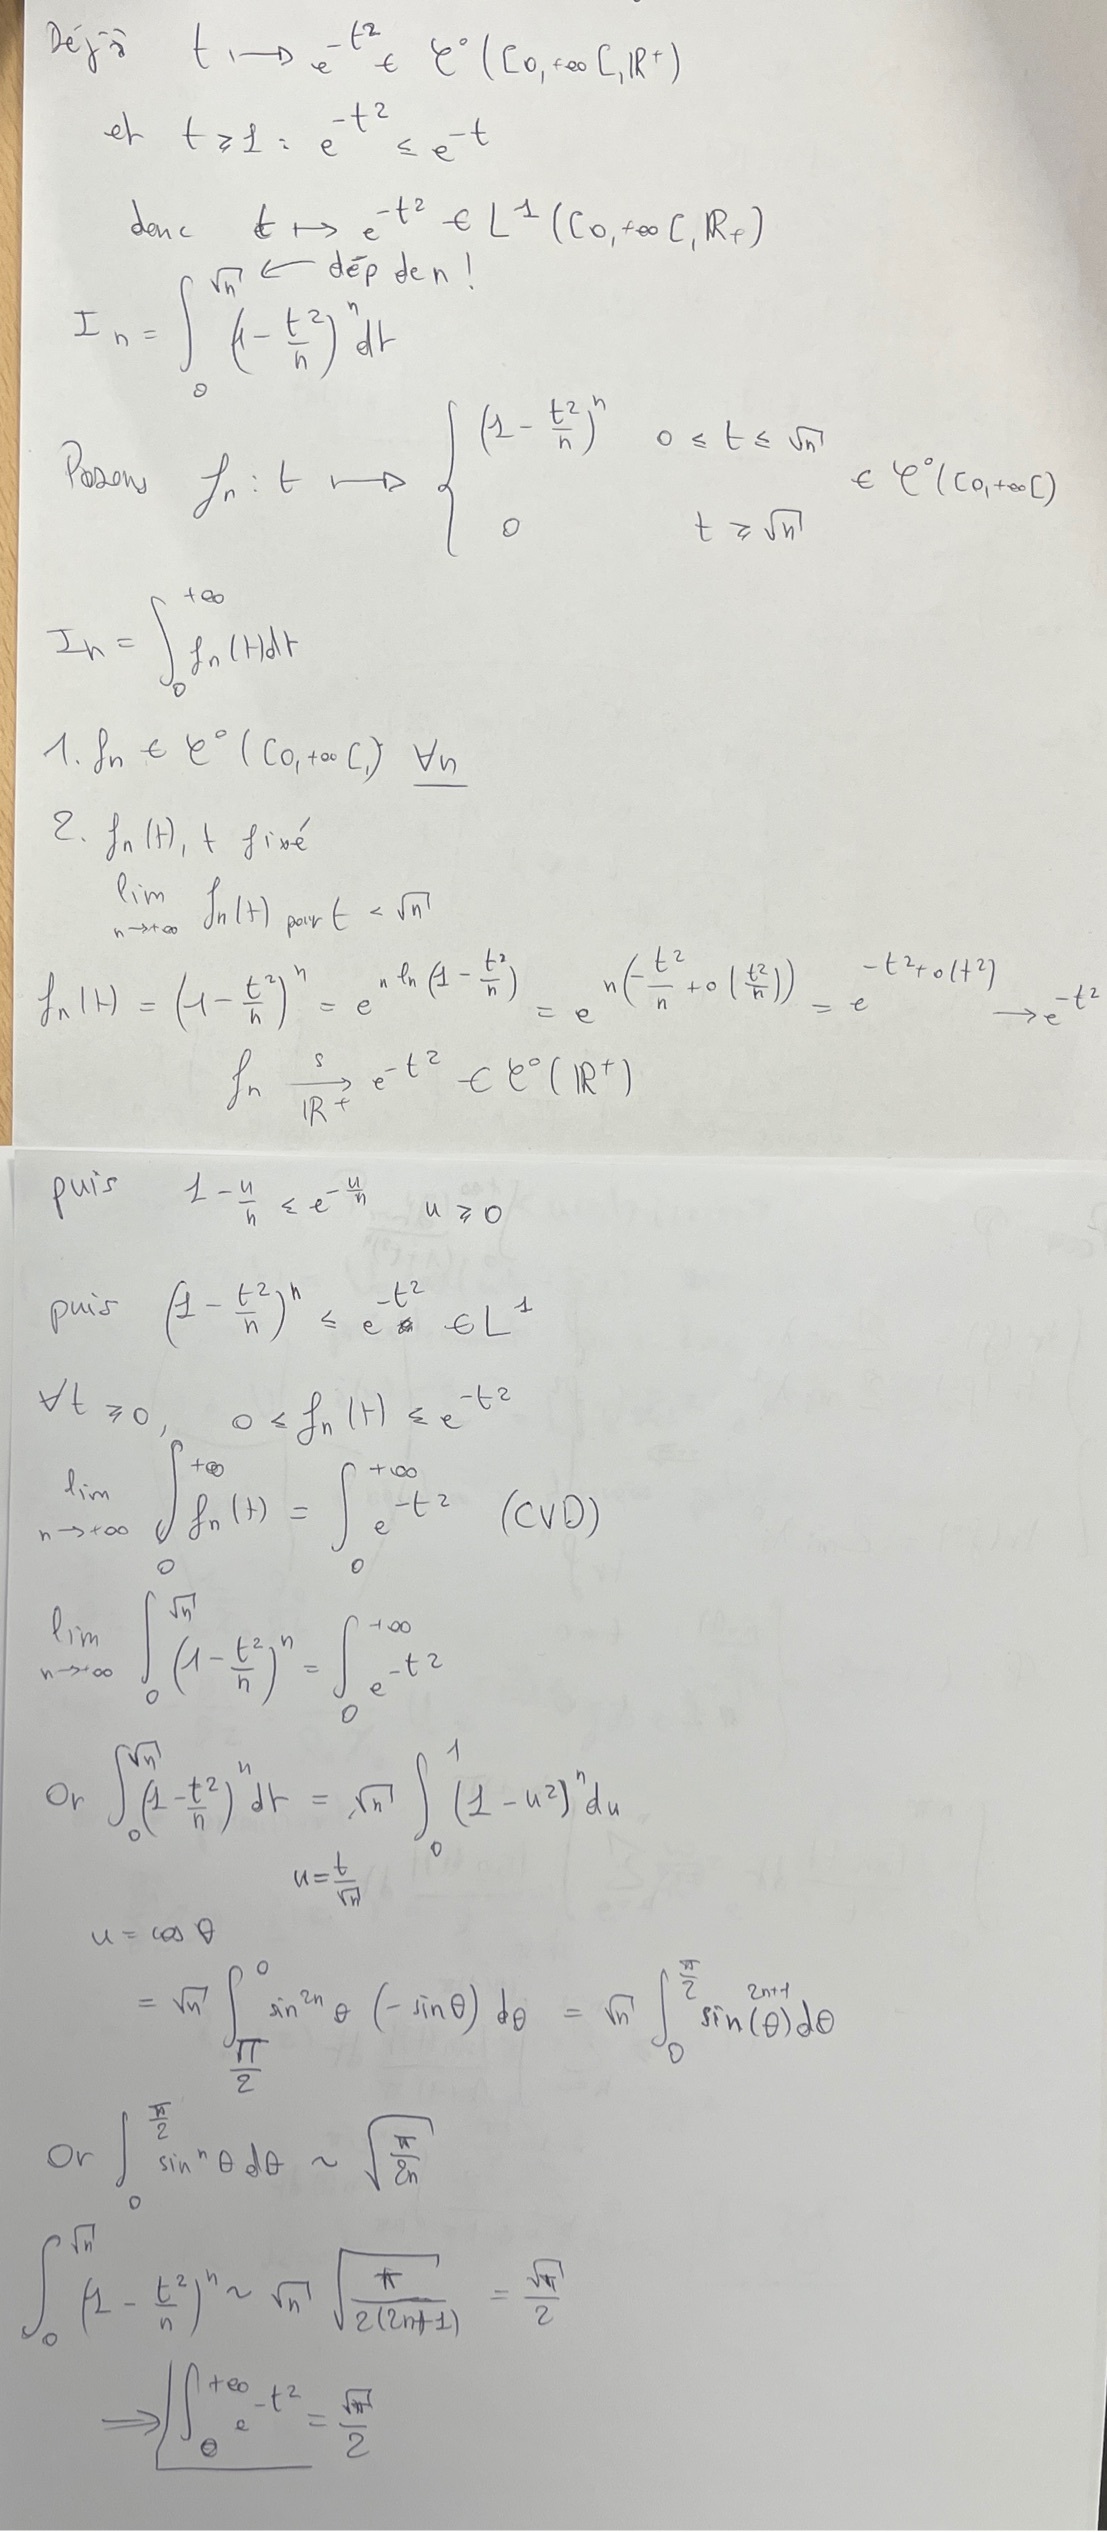 Déjà t ↦ e^{-t²} ∈ C°([0,+∞[, ℝ⁺)
et t ≥ 1 : e^{-t²} ≤ e^{-t}
donc t ↦ e^{-t²} ∈ L¹([0,+∞[, ℝ₊)
I_n = ∫_0^{√n} (1 - t²/n)^n dt ← dép de n !
Posons f_n : t ↦ { (1 - t²/n)^n 0 ≤ t ≤ √n ; 0 t ≥ √n ∈ C°([0,+∞[)
I_n = ∫_0^{+∞} f_n(t)dt
1. f_n ∈ C°([0,+∞[,) ∀n
2. f_n(t), t fixé
lim_{n→+∞} f_n(t) pour t < √n
f_n(t) = (1 - t²/n)^n = e^{n ln(1 - t²/n)} = e^{n(-t²/n + o(t²/n))} = e^{-t² + o(t²)} → e^{-t²}
f_n →^s_{ℝ⁺} e^{-t²} ∈ C°(ℝ⁺)
puis 1 - u/n ≤ e^{-u/n} u ≥ 0
puis (1 - t²/n)^n ≤ e^{-t²} ∈ L¹
∀t ≥ 0, 0 ≤ f_n(t) ≤ e^{-t²}
lim_{n→+∞} ∫_0^{+∞} f_n(t) = ∫_0^{+∞} e^{-t²} (CVD)
lim_{n→+∞} ∫_0^{√n} (1 - t²/n)^n = ∫_0^{+∞} e^{-t²}
Or ∫_0^{√n} (1 - t²/n)^n dt = √n ∫_0^1 (1 - u²)^n du
u = t/√n
u = cos θ
= √n ∫_{π/2}^0 sin^{2n} θ (-sin θ) dθ = √n ∫_0^{π/2} sin^{2n+1}(θ) dθ
Or ∫_0^{π/2} sin^n θ dθ ~ √(π/2n)
∫_0^{√n} (1 - t²/n)^n ~ √n √(π/2(2n+1)) = √π/2
⟹ ∫_0^{+∞} e^{-t²} = √π/2